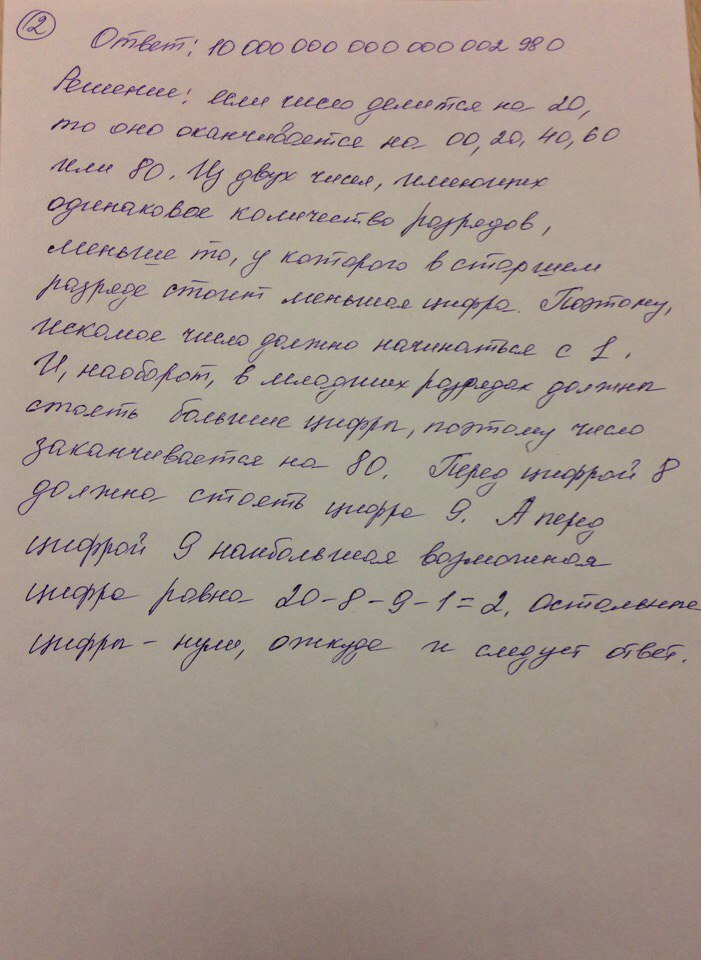 2
Ответ: 10 000 000 000 000 000 002 980
Решение: если число делится на 20,
то оно оканчивается на 00, 20, 40, 60
или 80. Из двух чисел, имеющих
одинаковое количество разрядов,
меньше то, у которого в старшем
разряде стоит меньшая цифра. Поэтому,
искомое число должно начинаться с 1.
И, наоборот, в младших разрядах должны
стоять большие цифры, поэтому число
заканчивается на 80. Перед цифрой 8
должна стоять цифра 9. А перед
цифрой 9 наибольшая возможная
цифра равна 20-8-9-1=2. Остальные
цифры - нули, откуда и следует ответ.